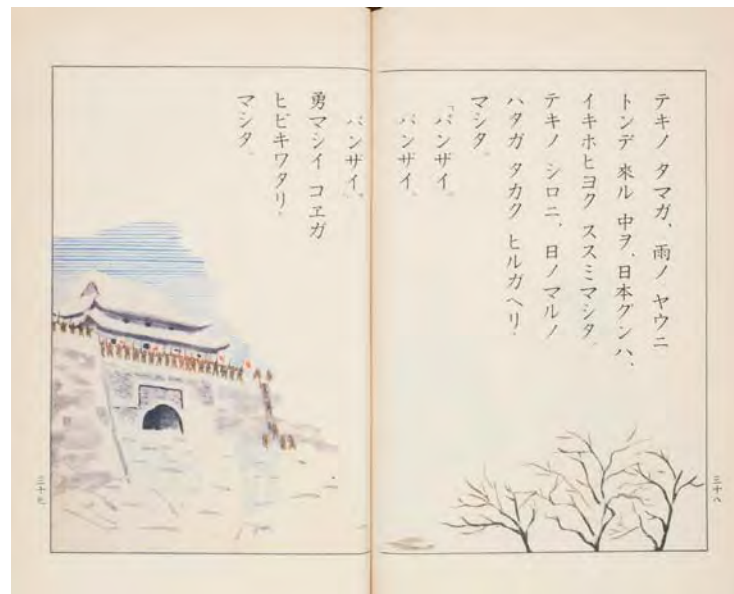 テキノ タマガ、雨ノ ヤウニ
トンデ 來ル 中ヲ、日本グンハ、
イキホヒヨク ススミマシタ。
テキノ シロニ、日ノマルノ
ハタガ タカク ヒルガヘリ
マシタ。
「バンザイ。
バンザイ。
バンザイ。」
勇マシイ コヱガ
ヒビキワタリ
マシタ。
三十八
三十九